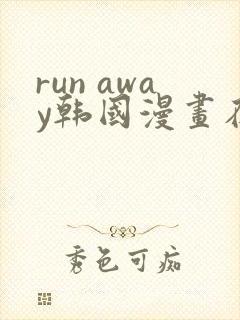 run awa
y韩國漫畫在
秀色可痴